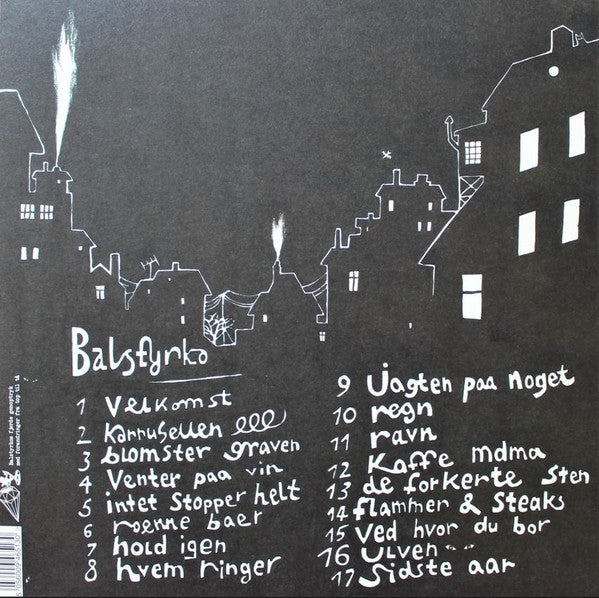 Balstyrko
1 Velkomst
2 Karrusellen
3 blomster graven
4 Venter paa vin
5 intet stopper helt
6 roenne baer
7 hold igen
8 hvem ringer
9 Jagten paa noget
10 regn
11 ravn
12 Kaffe mdma
13 de forkerte sten
14 flammer & steaks
15 Ved hvor du bor
16 Ulven
17 Sidste aar
Balstyrkos fjerde genoptryk
med forandringer fra top til tå